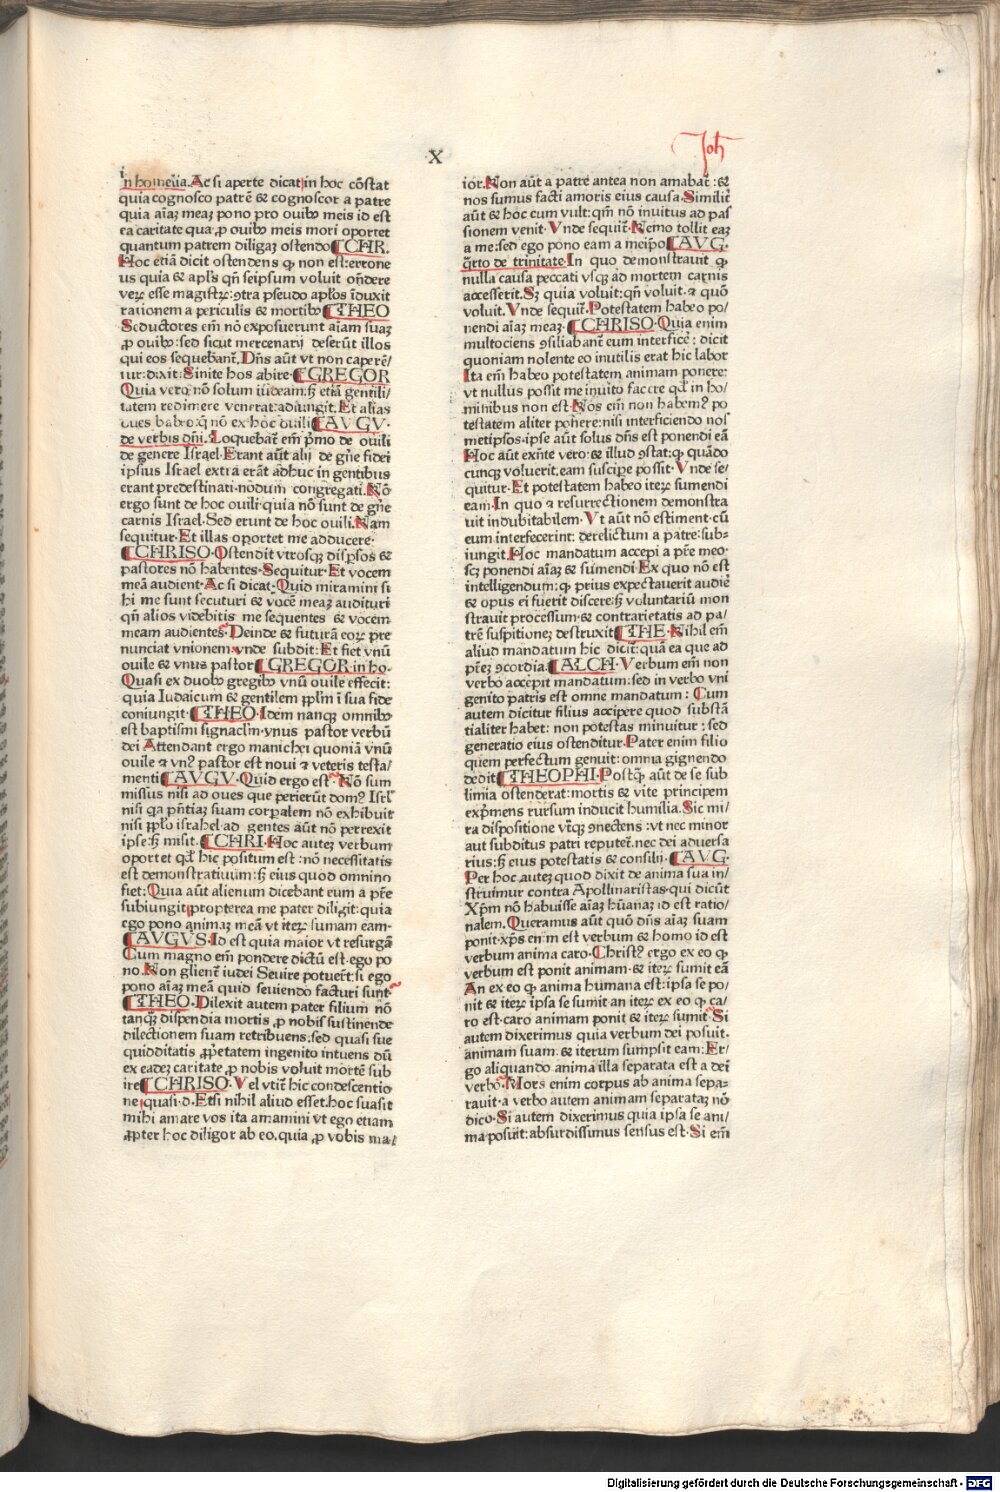 X
Joh
in homelia. Ac si aperte dicat in hoc cōstat
quia cognosco patrē & cognoscor a patre
quia aīaꝫ meaꝫ pono pro ouibꝰ meis id est
ea caritate qua ꝓ ouibꝰ meis mori oportet
quantum patrem diligaꝫ ostendo CHR.
Hoc etiā dicit ostendens ꝙ non est: errone
us quia & apl̄s qn̄ seipsum voluit on̄dere
veꝝ esse magistꝝ: ꝯtra pseudo apl̄os īduxit
rationem a periculis & mortibꝰ THEO
Seductores em̄ nō exposuerunt aīam suaꝫ
ꝓ ouibꝰ: sed sicut mercenarij deserūt illos
qui eos sequebant̄. Dn̄s aūt vt non caperē/
tur: dixit: Sinite hos abire. GREGOR
Quia vero nō solum iudeam: sꝫ etiā gentili/
tatem redimere venerat: adiungit. Et alias
oues habeo q̄ nō ex hoc ouili AVGV.
de verbis dn̄i. Loquebat̄ em̄ p̄mo de ouili
de genere Israel. Erant aūt alij de gn̄e fidei
ipsius Israel extra erāt adhuc in gentibus
erant predestinati. nōdum congregati. Nō
ergo sunt de hoc ouili. quia nō sunt de gn̄e
carnis Israel. Sed erunt de hoc ouili. Nam
sequitur. Et illas oportet me adducere.
CHRISO. Ostendit vtrosqꝫ disp̄sos &
pastores nō habentes. Sequitur. Et vocem
meā audient. Ac si dicat. Quid miramini si
hi me sunt secuturi & vocē meaꝫ audituri
qn̄ alios videbitis me sequentes & vocem
meam audientes. Deinde & futurā eoꝝ pre
nunciat vnionem. vnde subdit: Et fiet vnū
ouile & vnus pastor GREGOR in ho.
Quasi ex duobꝰ gregibꝰ vnū ouile effecit:
quia Iudaicum & gentilem ppl̄m ī sua fide
coniungit. THEO. Idem nanqꝫ omnibꝰ
est baptismi signacl̄m. vnus pastor verbū
dei Attendant ergo manichei quoniā vnū
ouile & vnꝰ pastor est noui & veteris testa/
menti AVGV. Quid ergo est. Nō sum
missus nisi ad oues que perierūt domꝰ Isrl̄
nisi qa p̄ntiaꝫ suam corpalem nō exhibuit
nisi ppl̄o israhel. ad gentes aūt nō perrexit
ipse: sꝫ misit. CHRI. Hoc auteꝫ verbum
oportet qd̄ hic positum est: nō necessitatis
est demonstratiuum: sꝫ eius quod omnino
fiet: Quia aūt alienum dicebant eum a p̄re
subiungit propterea me pater diligit: quia
ego pono animaꝫ meā vt iteꝝ sumam eam.
AVGVS. Id est quia maior vt resurgā
Cum magno em̄ pondere dictū est. ego po
no. Non glient̄ iudei Seuire potuert̄: si ego
pono aīaꝫ meā quid seuiendo facturi sunt
THEO. Dilexit autem pater filium nō
tanqꝫ dispendia mortis ꝓ nobis sustinende
dilectionem suam retribuens: sed quasi sue
quidditatis ꝓp̄etatem ingenito intuens dū
ex eadeꝫ caritate ꝓ nobis voluit mortē sub
ire CHRISO. Vel vtiꝗ hic condescentio
ne quasi. d. Etsi nihil aliud esset. hoc suasit
mihi amare vos ita amamini vt ego etiam
ꝓpter hoc diligor ab eo. quia ꝓ vobis ma/
ior. Non aūt a patre antea non amabat̄: &
nos sumus facti amoris eius causa. Similit̄
aūt & hoc cum vult: qm̄ nō inuitus ad pas
sionem venit. Vnde sequit̄. Nemo tollit eaꝫ
a me: sed ego pono eam a meip̄o AVG.
q̄rto de trinitate. In quo demonstrauit ꝙ
nulla causa peccati vsqꝫ ad mortem carnis
accesserit. Sꝫ quia voluit: qn̄ voluit. & quō
voluit. Vnde sequit̄. Potestatem habeo po/
nendi aīaꝫ meaꝫ. CHRISO. Quia enim
multociens ꝯsiliabant̄ eum interficē: dicit
quoniam nolente eo inutilis erat hic labor
Ita em̄ habeo potestatem animam ponere:
vt nullus possit me inuito facere qd̄ in ho/
minibus non est. Nos em̄ non habemꝰ po
testatem aliter ponere: nisi interficiendo nos
metipsos. ipse aūt solus dn̄s est ponendi eā
Hoc aūt exn̄te vero: & illud ꝯstat: ꝙ quādo
cunqꝫ voluerit. eam suscipe possit. Vnde se/
quitur. Et potestatem habeo iteꝝ sumendi
eam. In quo & resurrectionem demonstra
uit indubitabilem. Vt aūt nō estiment. cū
eum interfecerint: derelictum a patre: sub/
iungit. Hoc mandatum accepi a p̄re meo.
scꝫ ponendi aīaꝫ & sumendi. Ex quo nō est
intelligendum: ꝙ prius expectauerit audiē
& opus ei fuerit discere: sꝫ voluntariū mon
strauit processum: & contrarietatis ad pa/
trē suspitioneꝫ destruxit THE. Nihil em̄
aliud mandatum hic dicit̄: quā ea que ad
p̄reꝫ ꝯcordia. ALCH. Verbum em̄ non
verbo accepit mandatum: sed in verbo vni
genito patris est omne mandatum: Cum
autem dicitur filius accipere quod substā
tialiter habet: non potestas minuitur: sed
generatio eius ostenditur. Pater enim filio
quem perfectum genuit: omnia gignendo
dedit THEOPHI. Postq̄ aūt de se sub
limia ostenderat: mortis & vite principem
exp̄mens rursum inducit humilia. Sic mi/
ra dispositione vtꝛqꝫ ꝯnectens: vt nec minor
aut subditus patri reputet̄. nec dei aduersa
rius: sꝫ eius potestatis & consilij. AVG.
Per hoc auteꝫ quod dixit de anima sua in/
struimur contra Apollinaristas. qui dicūt
Xp̄m nō habuisse aīaꝫ hūanaꝫ id est ratio/
nalem. Queramus aūt quō dn̄s aīaꝫ suam
ponit. xp̄s enim est verbum & homo id est
verbum anima caro. Christꝰ ergo ex eo ꝙ
verbum est ponit animam. & iteꝝ sumit eā
An ex eo ꝙ anima humana est: ipsa se po/
nit & iteꝝ ipsa se sumit an iteꝝ ex eo ꝙ ca/
ro est. caro animam ponit & iteꝝ sumit. Si
autem dixerimus quia verbum dei posuit.
animam suam. & iterum sumpsit eam: Er/
go aliquando anima illa separata est a dei
verbo. Mors enim corpus ab anima sepa/
rauit. a verbo autem animam separataꝫ nō
dico. Si autem dixerimus quia ipsa se ani/
ma posuit: absurdissimus sensus est. Si em̄
Digitalisierung gefördert durch die Deutsche Forschungsgemeinschaft - DFG